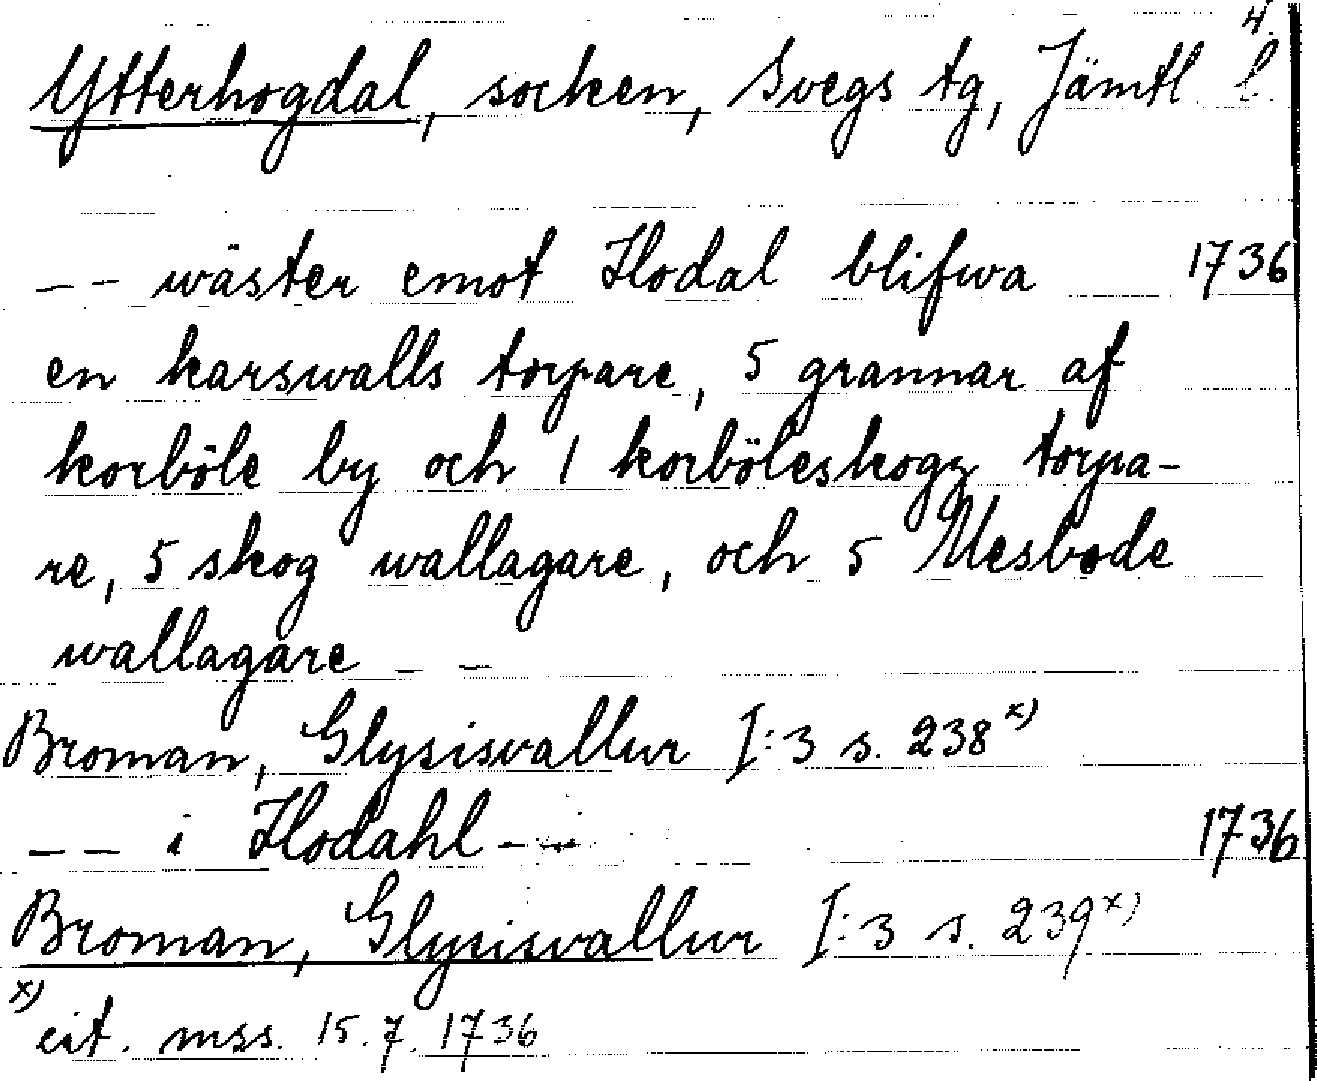 4.
Ytterhogdal, socken, Svegs tg, Jämtl l.
– – wäster emot Hodal blifwa 1736
en karswalls torpare, 5 grannar af
korböle by och 1 korböleskogz torpa-
re, 5 skog wallagare, och 5 Mesbode
wallagare – –
Broman, Glysisvallur I:3 s. 238 x)
– – i Hodahl – – 1736
Broman, Glysisvallur I:3 s. 239 x)
x) cit. mss. 15.7.1736